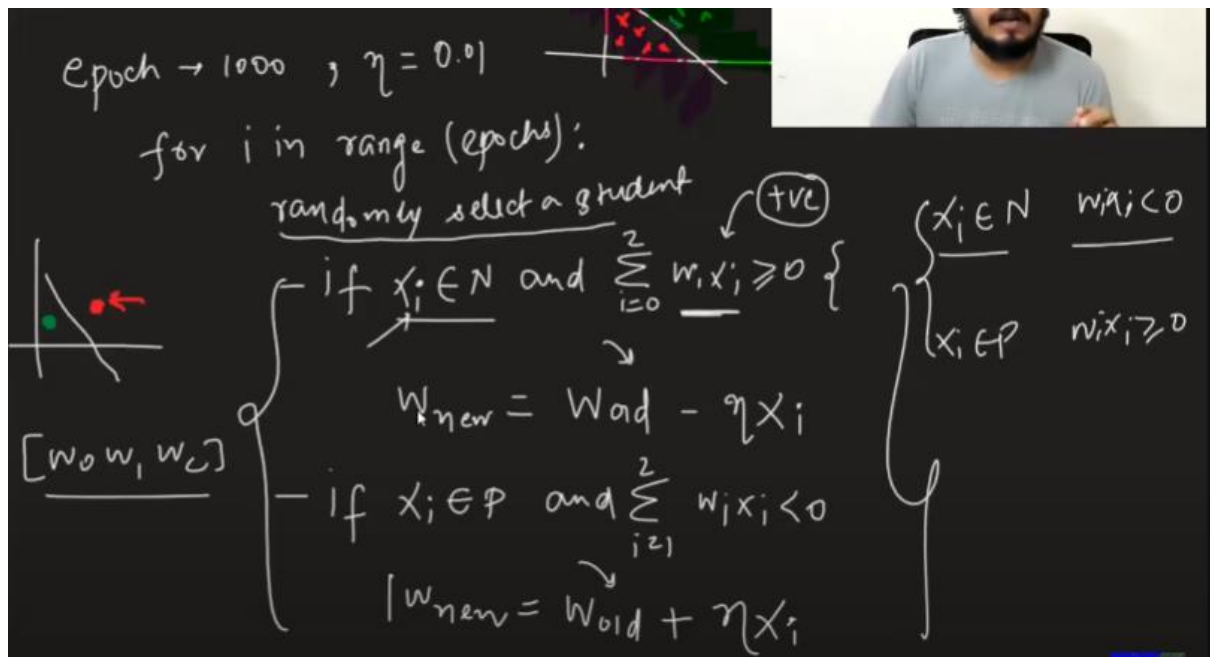 epoch → 1000 , η = 0.01
for i in range (epochs):
randomly select a student
+ve
if Xi ∈ N and 2 Σ i=0 wixi ≥ 0 {
Wnew = Wold - ηXi
if Xi ∈ P and 2 Σ i=1 wixi < 0
Wnew = Wold + ηXi
[w0 w1 w2]
Xi ∈ N wixi < 0
Xi ∈ P wixi ≥ 0